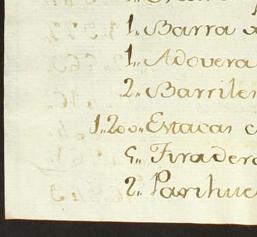 1,, Barra
1,, Adovera
2,, Barriles
1.200,, Estacas
5,, Tiradera
2,, Parihue